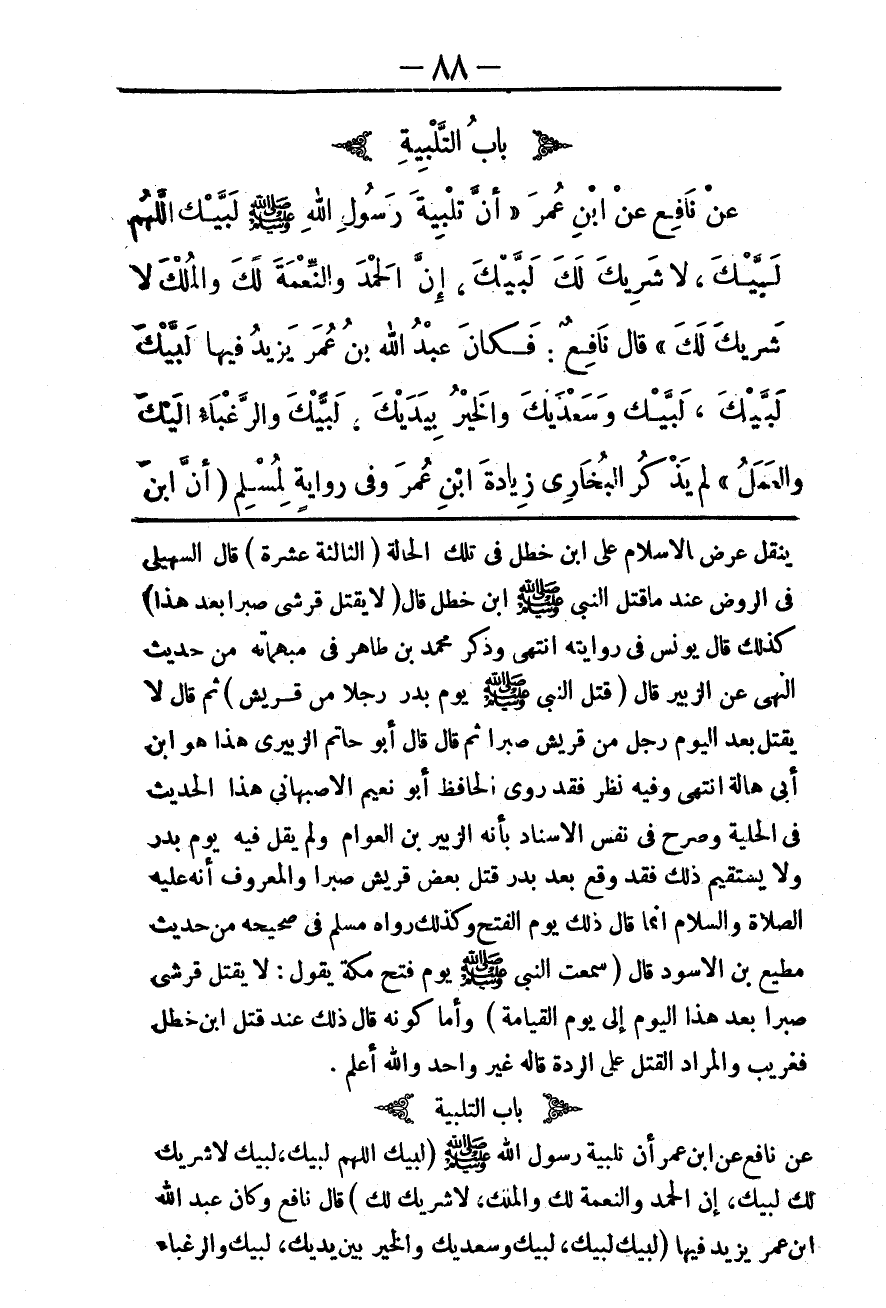 — ٨٨ —
بابُ التَّلْبِيةِ
عنْ نَافِعٍ عنْ ابْنِ عُمرَ « أنَّ تلْبِيةَ رَسُولِ اللهِ ﷺ لَبَّيْك اللَّهُم
لَبَّيْكَ ، لا شَرِيكَ لَكَ لَبَّيْكَ ، إِنَّ الحَمْدَ والنِّعْمَةَ لَكَ والمُلْكَ لا
شَرِيكَ لَكَ » قال نَافِعٌ : فَكانَ عبْدُ الله بنُ عُمَرَ يَزيدُ فيها لَبَّيْكَ
لَبَّيْكَ ، لَبَّيْك وسَعْدَيْكَ والخَيْرُ بِيَدَيْكَ ، لَبَّيْكَ والرَّغْبَاءُ اليْكَ
والعَمَلُ » لم يَذْكُر البُخَارِى زِيادةَ ابْنِ عُمَرَ وفى روايةٍ لِمُسْلِمٍ ( أنَّ ابنَ
ينقل عرض الاسلام على ابن خطل فى تلك الحالة ( الثالثة عشرة ) قال السهيلى
فى الروض عند ماقتل النبي ﷺ ابن خطل قال ( لايقتل قرشى صبرا بعد هذا )
كذلك قال يونس فى روايته انتهى وذكر محمد بن طاهر فى مبهماته من حديث
النهى عن الزبير قال ( قتل النبي ﷺ يوم بدر رجلا من قريش ) ثم قال لا
يقتل بعد اليوم رجل من قريش صبرا ثم قال قال أبو حاتم الزبيرى هذا هو ابن
أبى هالة انتهى وفيه نظر فقد روى الحافظ أبو نعيم الاصبهاني هذا الحديث
فى الحلية وصرح فى نفس الاسناد بأنه الزبير بن العوام ولم يقل فيه يوم بدر
ولا يستقيم ذلك فقد وقع بعد بدر قتل بعض قريش صبرا والمعروف أنه عليه
الصلاة والسلام انما قال ذلك يوم الفتح وكذلك رواه مسلم فى صحيحه من حديث
مطيع بن الاسود قال ( سمعت النبي ﷺ يوم فتح مكة يقول : لا يقتل قرشى
صبرا بعد هذا اليوم إلى يوم القيامة ) وأما كونه قال ذلك عند قتل ابن خطل
فغريب والمراد القتل على الردة قاله غير واحد والله أعلم .
باب التلبية
عن نافع عن ابن عمر أن تلبية رسول الله ﷺ ( لبيك اللهم لبيك ، لبيك لاشريك
لك لبيك ، إن الحمد والنعمة لك والملك ، لاشريك لك ) قال نافع وكان عبد الله
ابن عمر يزيد فيها ( لبيك لبيك ، لبيك وسعديك والخير بين يديك ، لبيك والرغباء